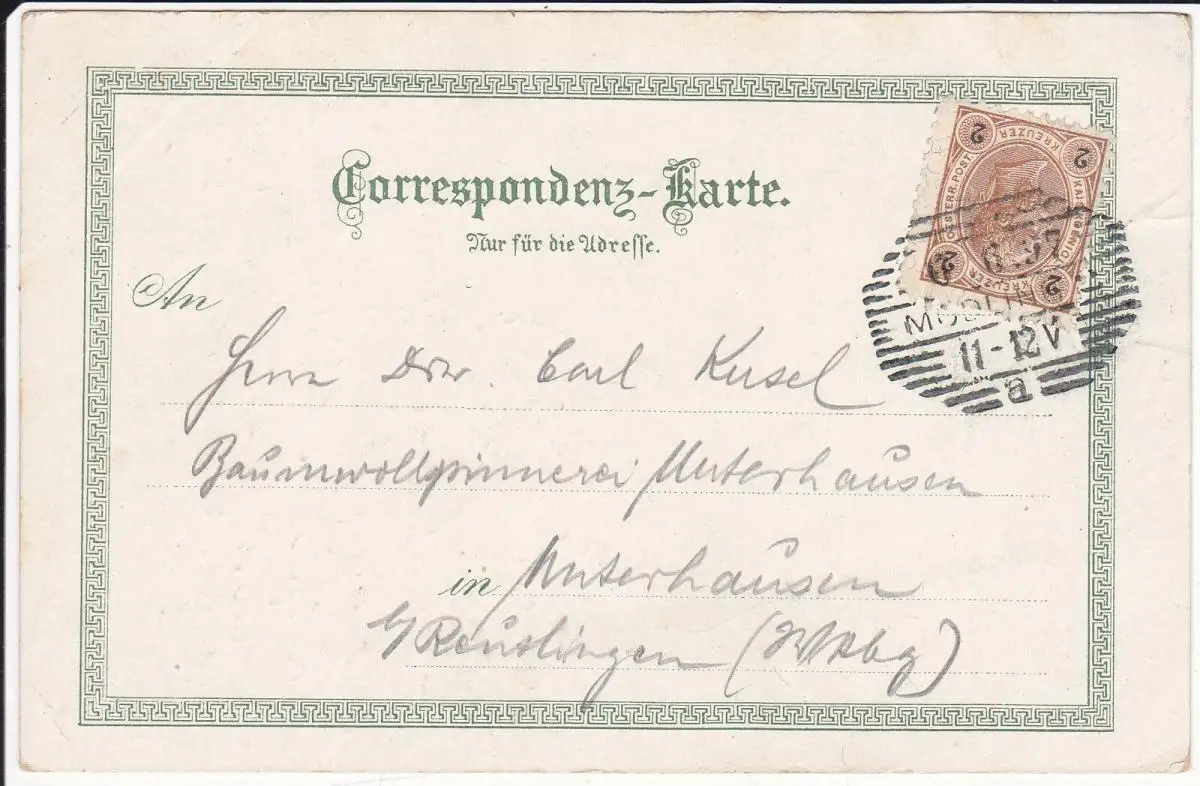 Correspondenz-Karte.
Nur für die Adresse.
An
Herrn Carl Kusel
Baumwollspinnerei Unterhausen
in Unterhausen
b/ Reutlingen (Wrbg)
2 KREUZER 2
OESTERR. POST
KAIS. KÖNIGL.
2 KREUZER 2
6 97
11-12V
a